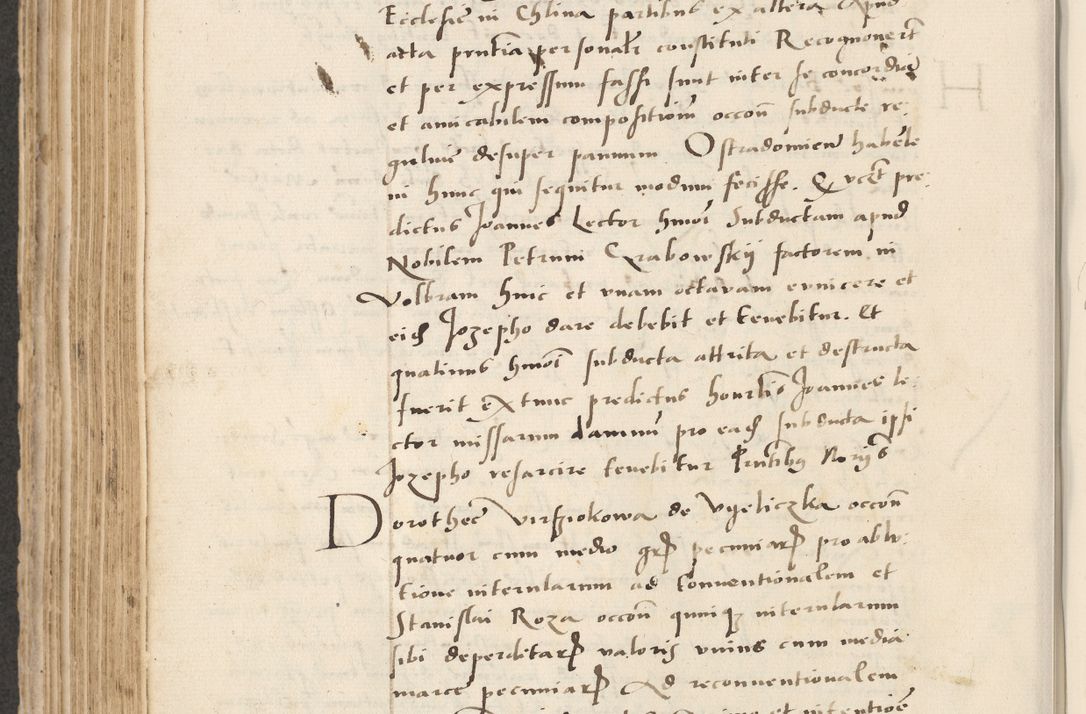 Ecclesie in Chlina partibus ex altera Apud
acta pnntia personalr constituti Recognovert
et per expressum fassi sunt inter se concordia
et amicabilem compositionem occon subducte re
gulum desuper pannum Ostradomien habente
in hunc qui sequitur modum fecisse. Q vcet pre:
dictus Joannes Lector hmoi Subductam apud
Nobilem Petrum Grabowskij factorem in
Volbram hinc et vnam octavam evincere et
eid Jozepho dare debebit et tenebitur. Et
quatinus hmoi subducta attrita et destructa
fuerit extunc predictus honrlis Joannes le:
ctor missarum damnum pro ead subducta ipsi
Jozepho resarcire tenebitur Pntibus Norijs
Dorothee Virsziokowa de Vyeliczka occon
quatuor cum medio grp pecuniarp pro ablu:
tione internlarum ad Conventionalem et
Stanislai Roza occon quinq internlarum
sibi deperditarp valoris vnius cum media
marce pecuniarp Ad reconventionalem
et intentione